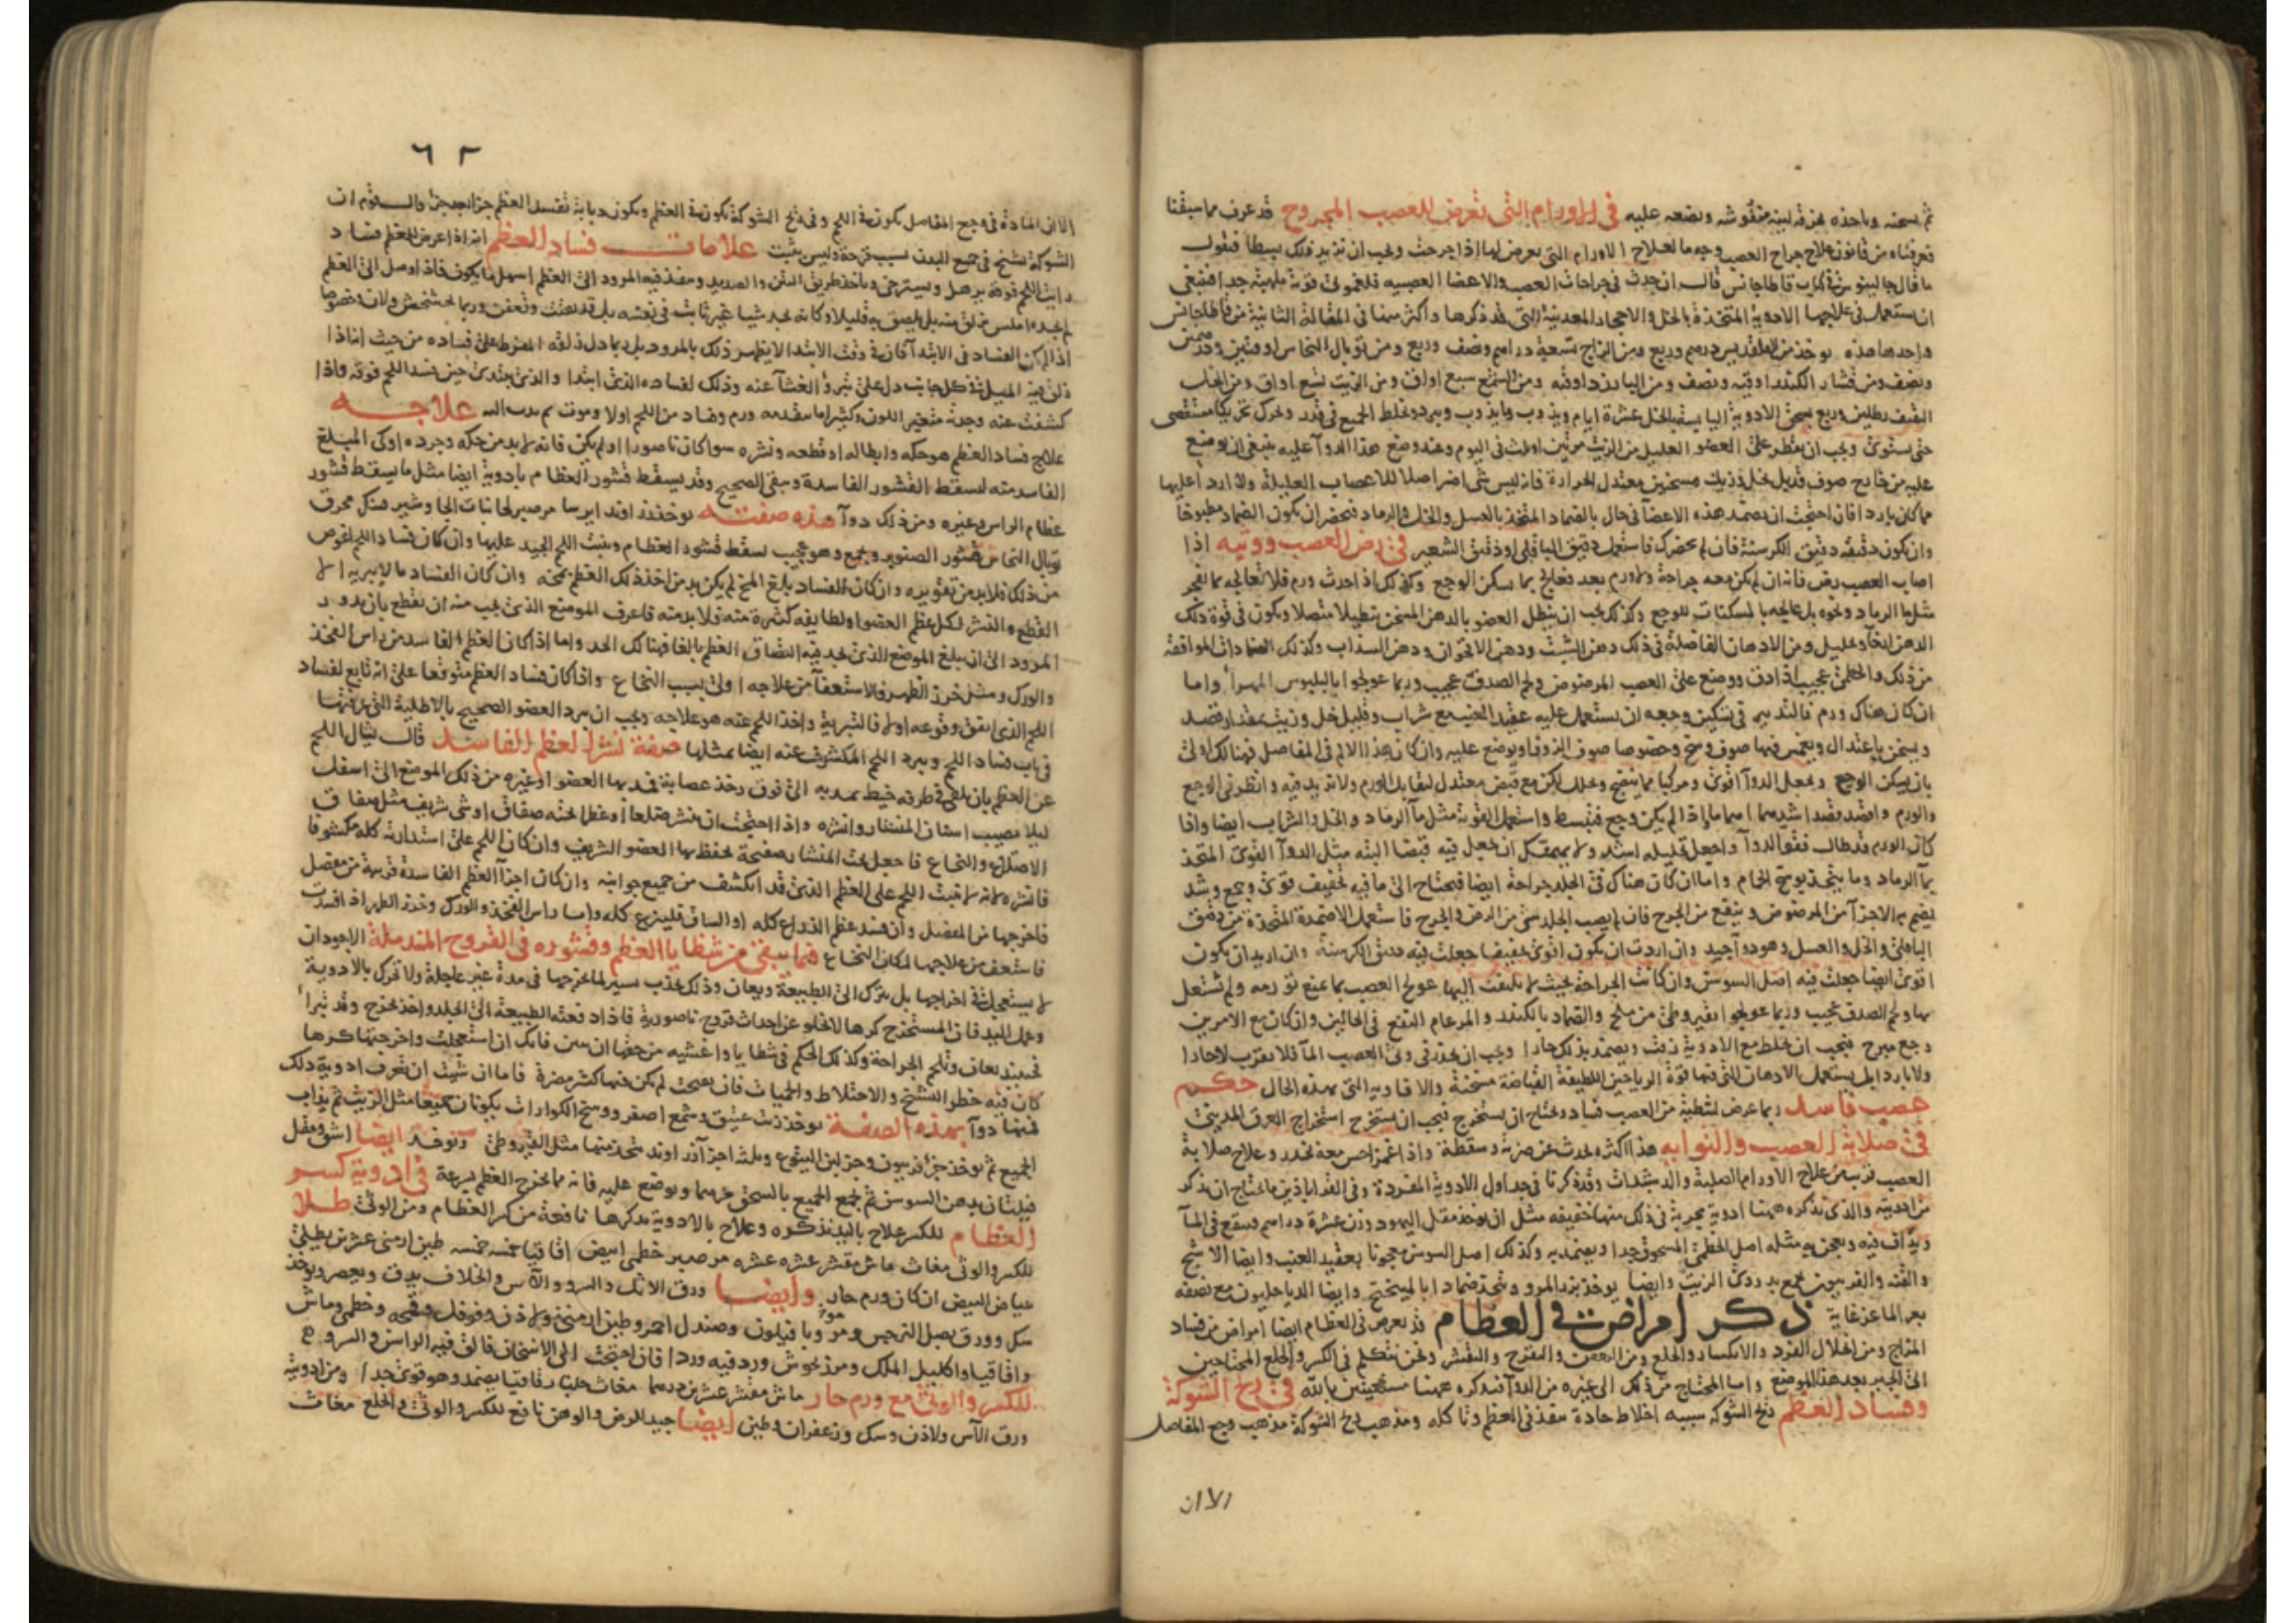 ثم يسحقه وياخذه بخرقة لينة منفوشه ويضعه عليه في الاورام التي تعرض للعصب المجروح قد عرف مما سبقنا
فعرفناه من قانون علاج جراح العصب وجه ما لعلاج الاورام التي يعرض لها اذا جرحت ويجب ان نزيد ذلك بسطا فنقول
ما قال جالينوس في كتاب قاطاجانس قال ان حدث في جراحات العصب والاعضا العصبيه فلغموني قوية ملهبة جدا فينبغي
ان يستعمل في علاجها الادوية المتخذة بالخل والاحجار المعدنية التي قد ذكرها واكثر منها في المقالة الثانية من قاطاجانس
واحدها هذه يوخذ من القلقديس درهم وربع ومن الزاج تسعة دراهم ونصف وربع ومن توبال النحاس اوقيتين
ونصف ومن قشار الكندر اوقيه ونصف ومن البارزد اوقيه ومن الشمع سبع اواق ومن الزيت تسع اواق ومن الخل
الثقيف رطلين وربع يسحق الادوية اليابسة بالخل عشرة ايام ويذوب ما يذوب ويبرد ويخلط الجميع في قدر ويحرك تحريكا مستقصى
حتى يستوي ويجب ان يقطر على العضو العليل من الزيت مرتين او ثلث في اليوم وعند وضع هذا الدوا عليه ينبغي ان يوضع
عليه من خارج صوف قد بل بخل وزيت مسخنين معتدل الحرارة فانه ليس شي اضر اصلا للاعصاب العليلة ولا ارد اعليها
مما كان باردا فان احتجت ان تضمد هذه الاعضا في حال بالضماد المتخذ بالعسل والخل والرماد فتحضر ان يكون الضماد مطبوخا
وان يكون دقيقه دقيق الكرسنة فان لم يحضرك فاستعمل دقيق الباقلى او دقيق الشعير في رض العصب ووثيه اذا
اصاب العصب رض فانه ان لم يكن معه جراحة ولا ورم بعد فعالج بما يسكن الوجع وكذلك اذا حدث ورم فلا تعالجه بما يفجر
مثل ما الرماد ونحوه بل عالجه بالمسكنات للوجع وكذلك يجب ان ينطل العضو بالدهن المسخن تنطيلا متصلا ويكون في قوة ذلك
الدهن ارخا وتحليل ومن الادهان الفاضلة في ذلك دهن الشبث ودهن الاقحوان ودهن السذاب وكذلك الضمادات الموافقة
من ذلك والخطمي عجيب اذا دق ووضع على العصب المرضوض ولحم الصدف عجيب وربما عولجوا بالبلبوس المهرا واما
ان كان هناك ورم فالتدبير في تسكين وجعه ان يستعمل عليه عقيد العنب مع شراب وقليل خل وزيت بمقدار قصد
ويسخن باعتدال ويغمس فيها صوف وسخ وخصوصا صوف الزوفا ويوضع عليه وان كان هذا الالم في المفاصل فهنالك اولى
بان يسكن الوجع ويجعل الدوا اقوى ومركبا مما ينضج ويحلل لكن مع قبض معتدل ليقابل الورم ولا تزيد فيه وانظر في الوجع
والورم واقصد قصد اشدهما اهماما اذا لم يكن وجع فتبسط واستعمل القوية مثل ما الرماد والخل والشراب ايضا واذا
كان الورم قد طال فقو الدوا واجعل تحليله اشد ولا يمكنك ان تجعل فيه قبضا البته مثل الدوا القوي المتخذ
بما الرماد وما يتخذ بوسخ الحمام واما ان كان هناك في الجلد جراحة ايضا فيحتاج الى ما فيه تجفيف قوي وجمع وشد
يضم به الاجزا من المرضوض وينفع من الجرح فان لم يصب الجلد شي من الرض والجرح فاستعمل الاضمدة المتخذة من دقيق
الباقلى والخل والعسل وهو دوا جيد وان اردت ان يكون اقوى تجفيفا جعلت فيه دقيق الكرسنة وان اريد ان يكون
اقوى ايضا جعلت فيه اصل السوسن وان كانت الجراحة بحيث لا يلتفت اليها عولج العصب بما يمنع تورمه ولم تشتغل
بها ولحم الصدف عجيب وربما عولجوا بقيروطي من ملح والضماد بالكندر والمر عام النفع في الحالين وان كان مع الامرين
وجع مبرح فيجب ان يخلط مع الادوية زفت ويضمد بذلك حارا ويجب ان يحذر في وثى العصب الما فلا يقرب لا حارا
ولا باردا بل يستعمل الادهان التي فيها قوة الرياحين اللطيفة القباضة مسخنة والافاويه التي بهذه الحال حكم
عصب فاسد ربما عرض لشظية من العصب فساد ويحتاج ان يستخرج فيجب ان يستخرج استخراج العرق المديني
في صلابة العصب والتوايه هذا اكثره يحدث عن ضربة وسقطة واذا غمز احس معه بخدر وعلاج صلابة
العصب قريب من علاج الاورام الصلبة والدشبذات وقد ذكرنا في جداول الادوية المفردة وفي القراباذين ما يحتاج ان يذكر
من ادويته والذي نذكره ههنا ادوية مجربة في ذلك منها خفيفه مثل ان يوخذ مقل اليهود وزن عشرة دراهم وينقع في الما
ويداف فيه ويعجن به مثله اصل الخطمي المسحوق جدا ويضمد به وكذلك اصل السوسن معجونا بعقيد العنب وايضا الاشج
والقنه والفربيون يجمع بدردى الزيت وايضا يوخذ بزر المرو ويتخذ ضمادا بالميبختج وايضا الدياخليون مع نصفه
بعر الماعز غاية ذكر امراض في العظام قد يعرض في العظام ايضا امراض من فساد
المزاج ومن انحلال الفرد والانكسار والخلع ومن التعفن والتقرح والتقشر ونحن نتكلم في الكسر والخلع المحتاجين
الى الجبر بعد هذا الموضع واما المحتاج من ذلك الى غيره من الدوا فنذكره ههنا مستعينين بالله في ريح الشوكة
وفساد العظم ريح الشوكه سببه اخلاط حادة تنفذ في العظم وتاكله ومذهب ريح الشوكة مذهب وجع المفاصل
الا ان
٦٢
الا ان المادة في وجع المفاصل يكون في اللحم وفي ريح الشوكة يكون في العظم ويكون دبابة تفسد العظم جزا بعد جزا
الشوكة تسنح في جميع البدن بسبب قرحة وليس يثبت علامات فساد العظم انه اذا عرض للعظم فساد
رايت اللحم فوقه يرهل ويسترخي وياخذ طريق النتن والصديد وينفذ فيه المرود الى العظم اسهل ما يكون فاذا وصل الى العظم
لم يجده املس يزلق عنه بل يلصق به قليلا وكانه يجد شيا غير ثابت في نفسه بل قد تفتت وتعفن وربما تخشخش ولان وخصوصا
اذا لم يكن الفساد في الابتدا فان في وقت الابتدا لا يظهر ذلك بالمرود بل ربما دل زلقه المفرط على فساده من حيث انه اذا
زلق الى كل جانب دل على تبرؤ الغشا عنه وذلك لفساده الذي ابتدا والذي يبتدي حين يفسد اللحم فوقه فاذا
كشفت عنه وجدته متغير اللون وكثيرا ما يتقدمه ورم وفساد من اللحم اولا وموت ثم يدب اليه علاجه
علاج فساد العظم هو حكه وابطاله او قطعه ونشره سوا كان ناصورا او لم يكن فانه لا بد من حكه وجرده او كي المبلغ
الفاسد منه ليسقط القشور الفاسدة ويبقى الصحيح وقد يسقط قشور العظام بادوية ايضا مثل ما يسقط قشور
عظام الراس وغيره ومن ذلك دوا هذه صفته يوخذ زراوند ايرسا مر صبر لحا نبات الجاوشير فينك محرق
توبال النحاس قشور الصنوبر ويجمع وهو عجيب يسقط قشور العظام وينبت اللحم الجيد عليها وان كان فساد اللحم اغوص
من ذلك فلا بد من تقويره وان كان الفساد بلغ المخ لم يكن بد من اخذ ذلك العظم بمخه وان كان الفساد مما لا يبريه الا
القطع والنشر لكل عظم العضو او لطايفه كثيرة منه فلا بد منه فاعرف الموضع الذي يجب منه ان يقطع بان يدور
المرود الى ان يبلغ الموضع الذي نجد فيه التصاق العظم بالغا فهنالك الحد واما اذا كان العظم الفاسد من راس الفخذ
والورك ومثل خرز الظهر فالاستعفا من علاجه اولى بسبب النخاع واذا كان فساد العظم متوقعا على انه تابع لفساد
اللحم الذي اتفق وقوعه اولا فالتبرية واخذ اللحم عنه هو علاجه ويجب ان يبرد العضو الصحيح بالاطلية التي عرفتها
في باب فساد اللحم ويبرد اللحم المكشوف عنه ايضا بمثلها صفة نشر العظم الفاسد قال يشال اللحم
عن العظم بان يلقى في طرفه خيط يمد به الى فوق وخذ عصابة فمد بها العضو او غيره من ذلك الموضع الى اسفل
ليلا يصيب اسنان المنشار وانشره واذا احتجت ان تنشر ضلعا او عظما تحته صفاق او شي شريف مثل صفاق
الاضلاع والنخاع فاجعل تحت المنشار صفيحة تحفظ بها العضو الشريف وان كان اللحم على استدارته كله مكشوفا
فانشره لانه لا ينبت اللحم على العظم الذي قد انكشف من جميع جوانبه وان كان اجزا العظم الفاسدة قريبة من مفصل
فاخرجها من المفصل وان فسد عظم الذراع كله او الساق فلينزع كله واما راس الفخذ والورك وخرز الظهر اذا فسدت
فاستعف من علاجها لمكان النخاع فيما يبقى من شظايا العظم وقشوره في القروح المندملة الاجود ان
لا يستعجل في اخراجها بل يترك الى الطبيعة ويعان وذلك بجذب يسير لما يخرجها في مدة غير عاجلة ولا تحرك بالادوية
وعمل اليد فان المستخرج كرها لا يخلو عن احداث قروح ناصورية فاذا دفعته الطبيعة الى الجلد واخذ يخرج وقد تبرا
فحينئذ يعان وتلحم الجراحة وكذلك الحكم في شظايا واغشيه من حقها ان تبين فانك ان استعجلت واخرجتها كرها
كان فيه خطر التشنج والاختلاط والحميات فان تعفنت لم يكن فيها كثير مضرة فاما ان شيت ان تعرف ادوية ذلك
فمنها دوا بهذه الصفة يوخذ زيت عتيق وشمع اصفر ووسخ الكوارات يكونان جميعا مثل الزيت ثم يذاب
الجميع ثم يوخذ جزا فربيون وجز لبن اليتوع وثلثة اجزا زراوند يتخذ منها مثل القيروطي ويوخذ ايضا اشق ومقل
فيلتان بدهن السوسن ثم يجمع الجميع بالسحق ويوضع عليه فانه مما يخرج العظم بسرعة في ادوية كسر
العظام للكسر علاج باليد نذكره وعلاج بالادوية نذكرها نافعة من كسر العظام ومن الوثى طلا
للكسر والوثى مغاث ماش مقشر عشره عشره مر صبر خطمي ابيض اقاقيا خمسه خمسه طين ارمني عشرين يطلى
ببياض البيض ان كان ورم حار وايضا ورق الاثل والسرو والآس والخلاف يدق ويعصر ويوخذ
سك وورق بصل النرجس ومر وباقيلون وصندل احمر وطين ارمني ولاذن وفوفل وخطمي وماش
واقاقيا واكليل الملك ومرزنجوش وورد فيه وردا فان احتجت الى الاسخان فالق فيه الراسن والسرو
للكسر والوثى مع ورم حار ماش مقشر عشرين درهما مغاث اقاقيا يضمد وهو قوي جدا ومن ادوية
ورق الآس ولاذن وسك وزعفران وطين ايضا جيد للرض والوهن نافع للكسر والوثى والخلع مغاث